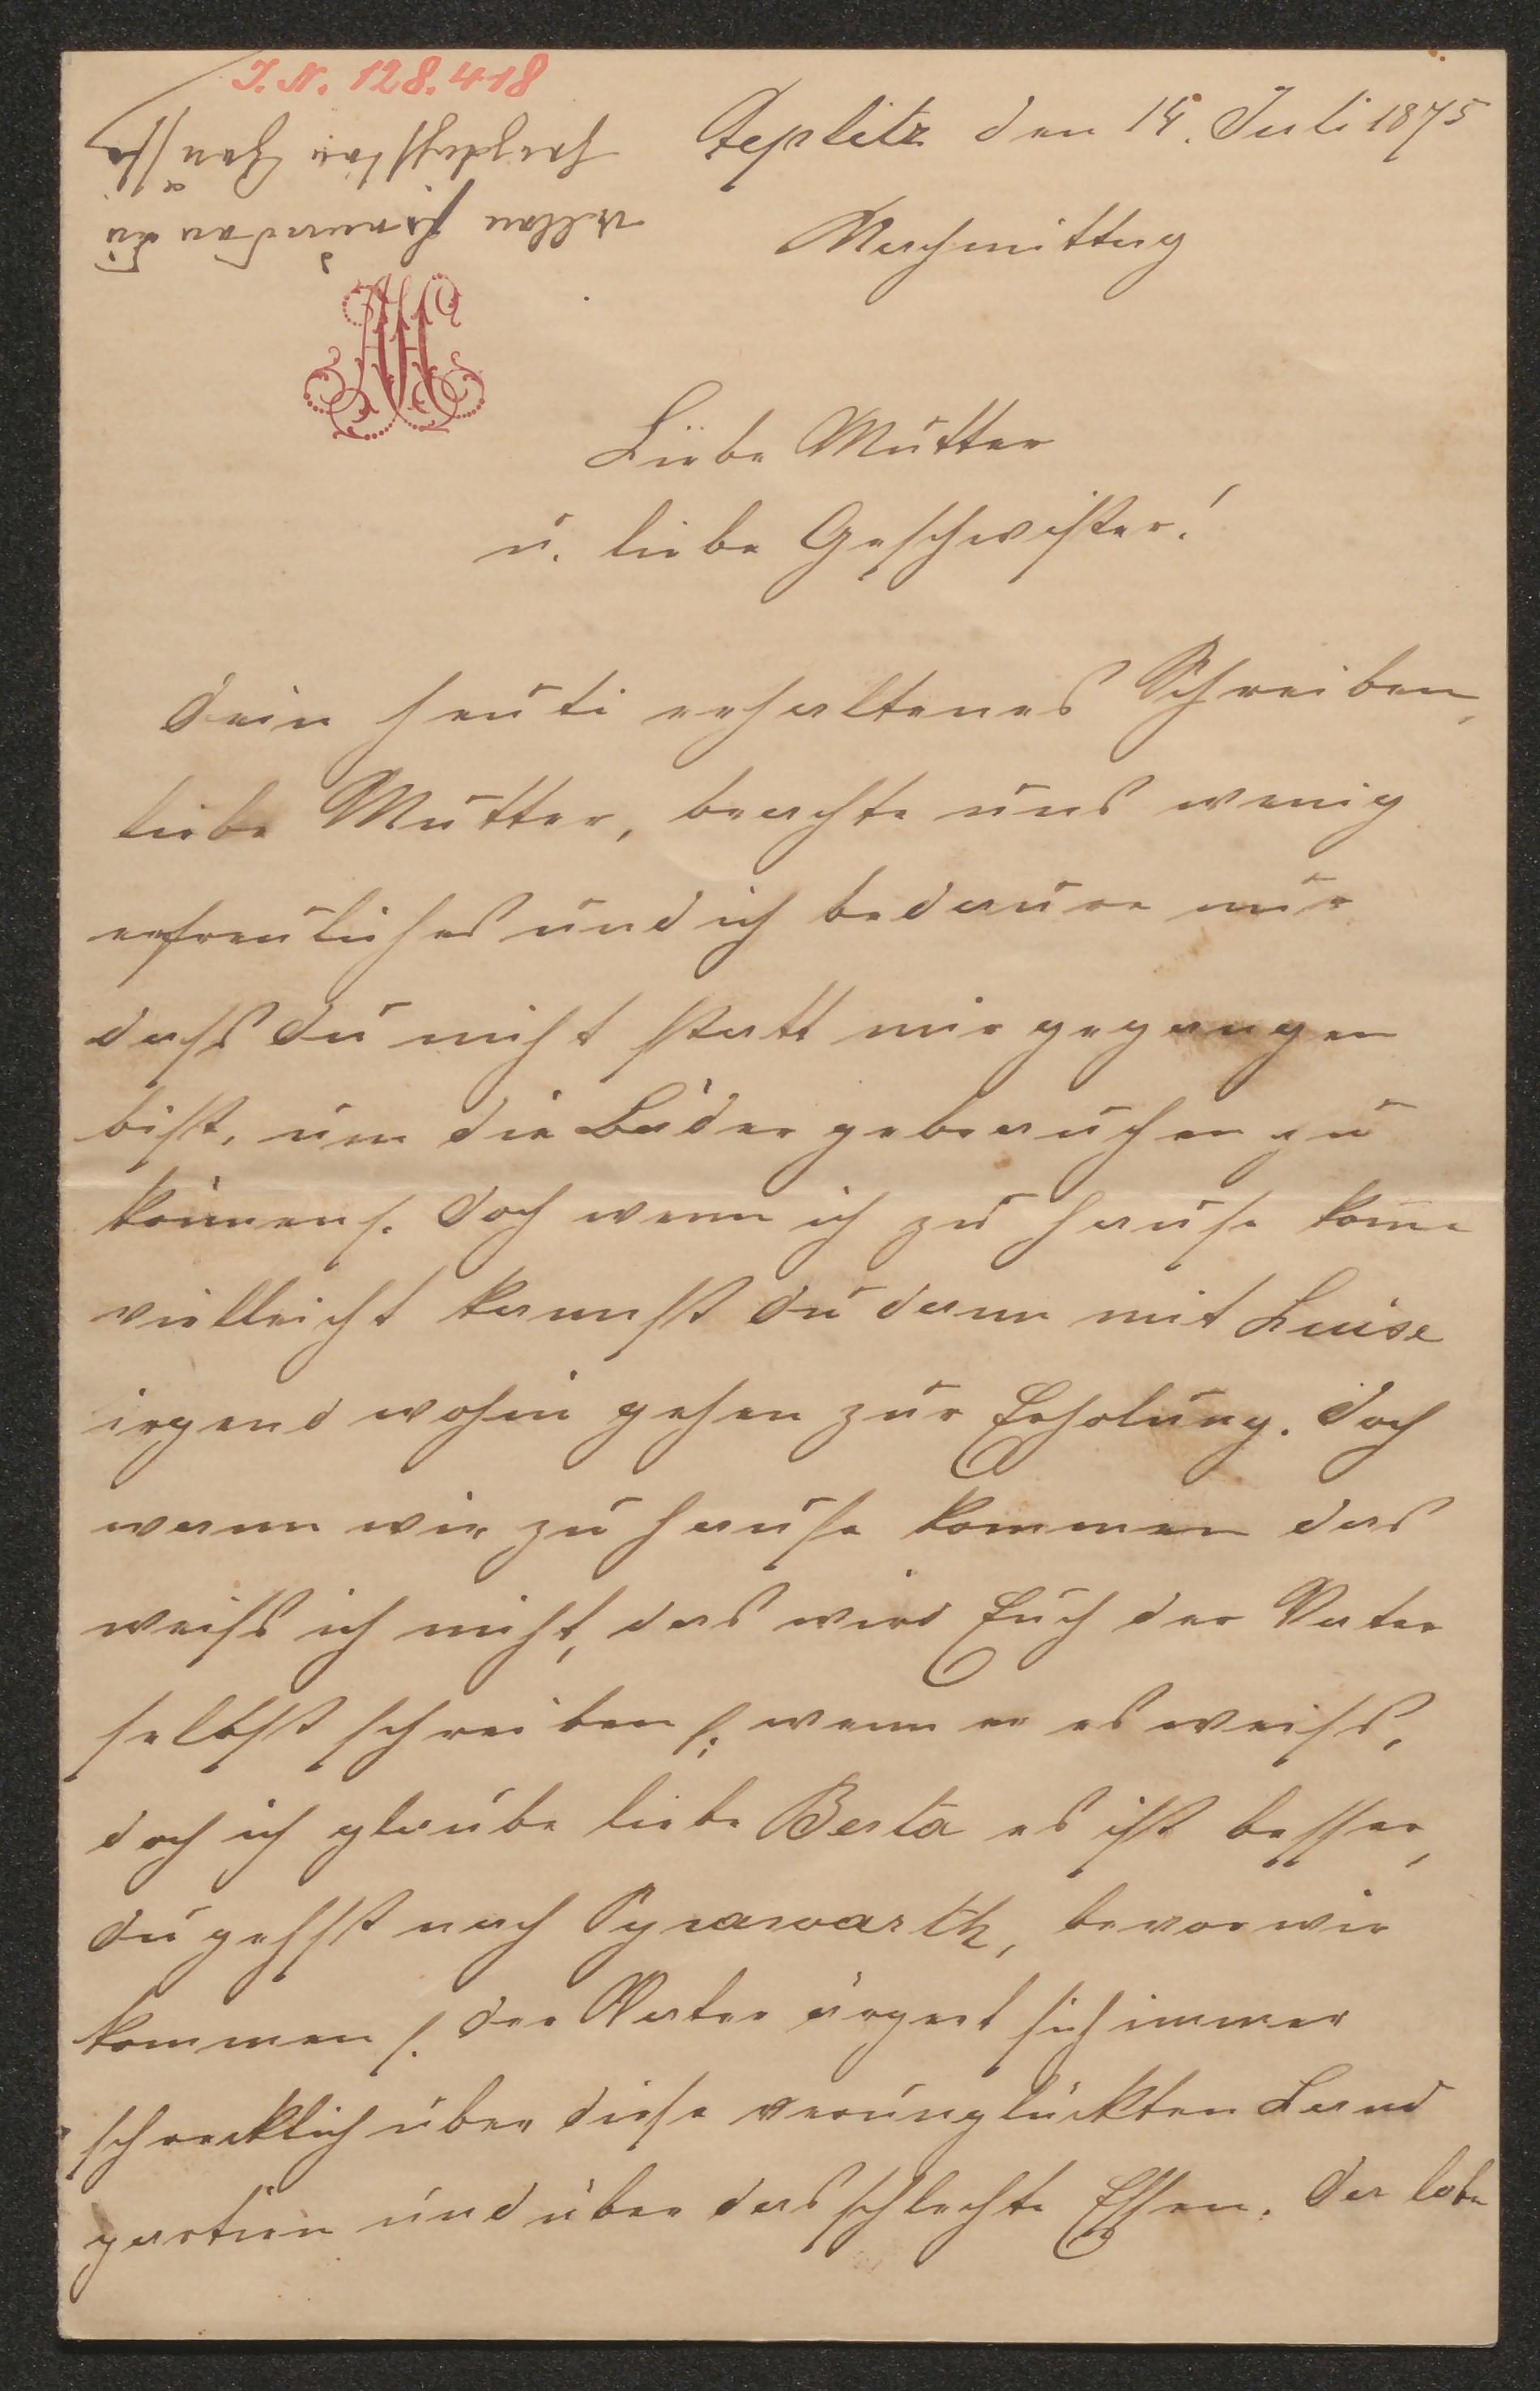 I. N. 128.418
Teplitz den 14. Juli 1875
Nachmittag
Liebe Mutter
u. liebe Geschwister!
Dein heuti erhaltenes Schreiben,
liebe Mutter, brachte uns wenig
erfreuliches und ich bedaure nur
dass du nicht statt mir gegangen
bist, um die Bäder gebrauchen zu
können. doch wenn ich zu Hause kome
vielleicht kannst du dann mit Luise
irgend wohin gehen zur Erholung. doch
wann wir zu Hause kommen das
weiss ich nicht, das wird Euch der Vater
selbst schreiben, wenn er es weiss,
doch ich glaube liebe Berta es ist besser,
du gehst nach Pyrawarth, bevor wir
kommen. der Vater ärgert sich immer
schrecklich über diese verunglückten Land
partien und über das schlechte Essen. Da lobe